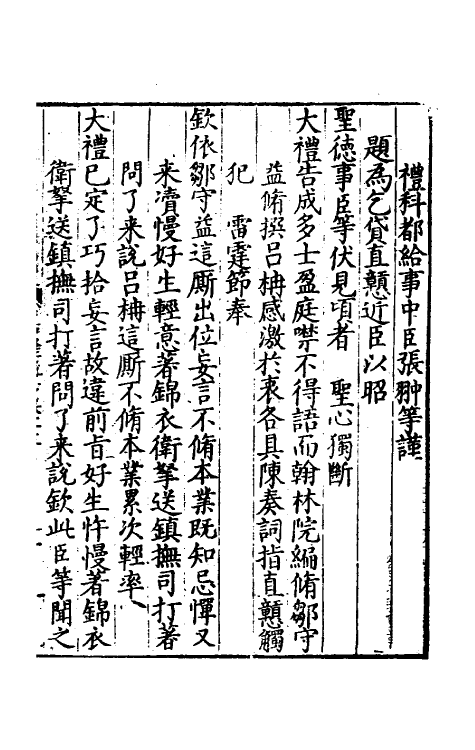 禮科都給事中臣張翀等謹
題為乞貸直戇近臣以昭
聖德事臣等伏見頃者　聖心獨斷
大禮告成多士盈庭噤不得語而翰林院編脩鄒守
益脩撰呂柟感激於衷各具陳奏詞指直戇觸
犯　雷霆節奉
欽依鄒守益這厮出位妄言不脩本業既知忌憚又
来瀆慢好生輕意著錦衣衛拏送鎮撫司打著
問了来說呂柟這厮不脩本業累次輕率
大禮已定了巧拾妄言故違前旨好生忤慢著錦衣
衛拏送鎮撫司打著問了来說欽此臣等聞之